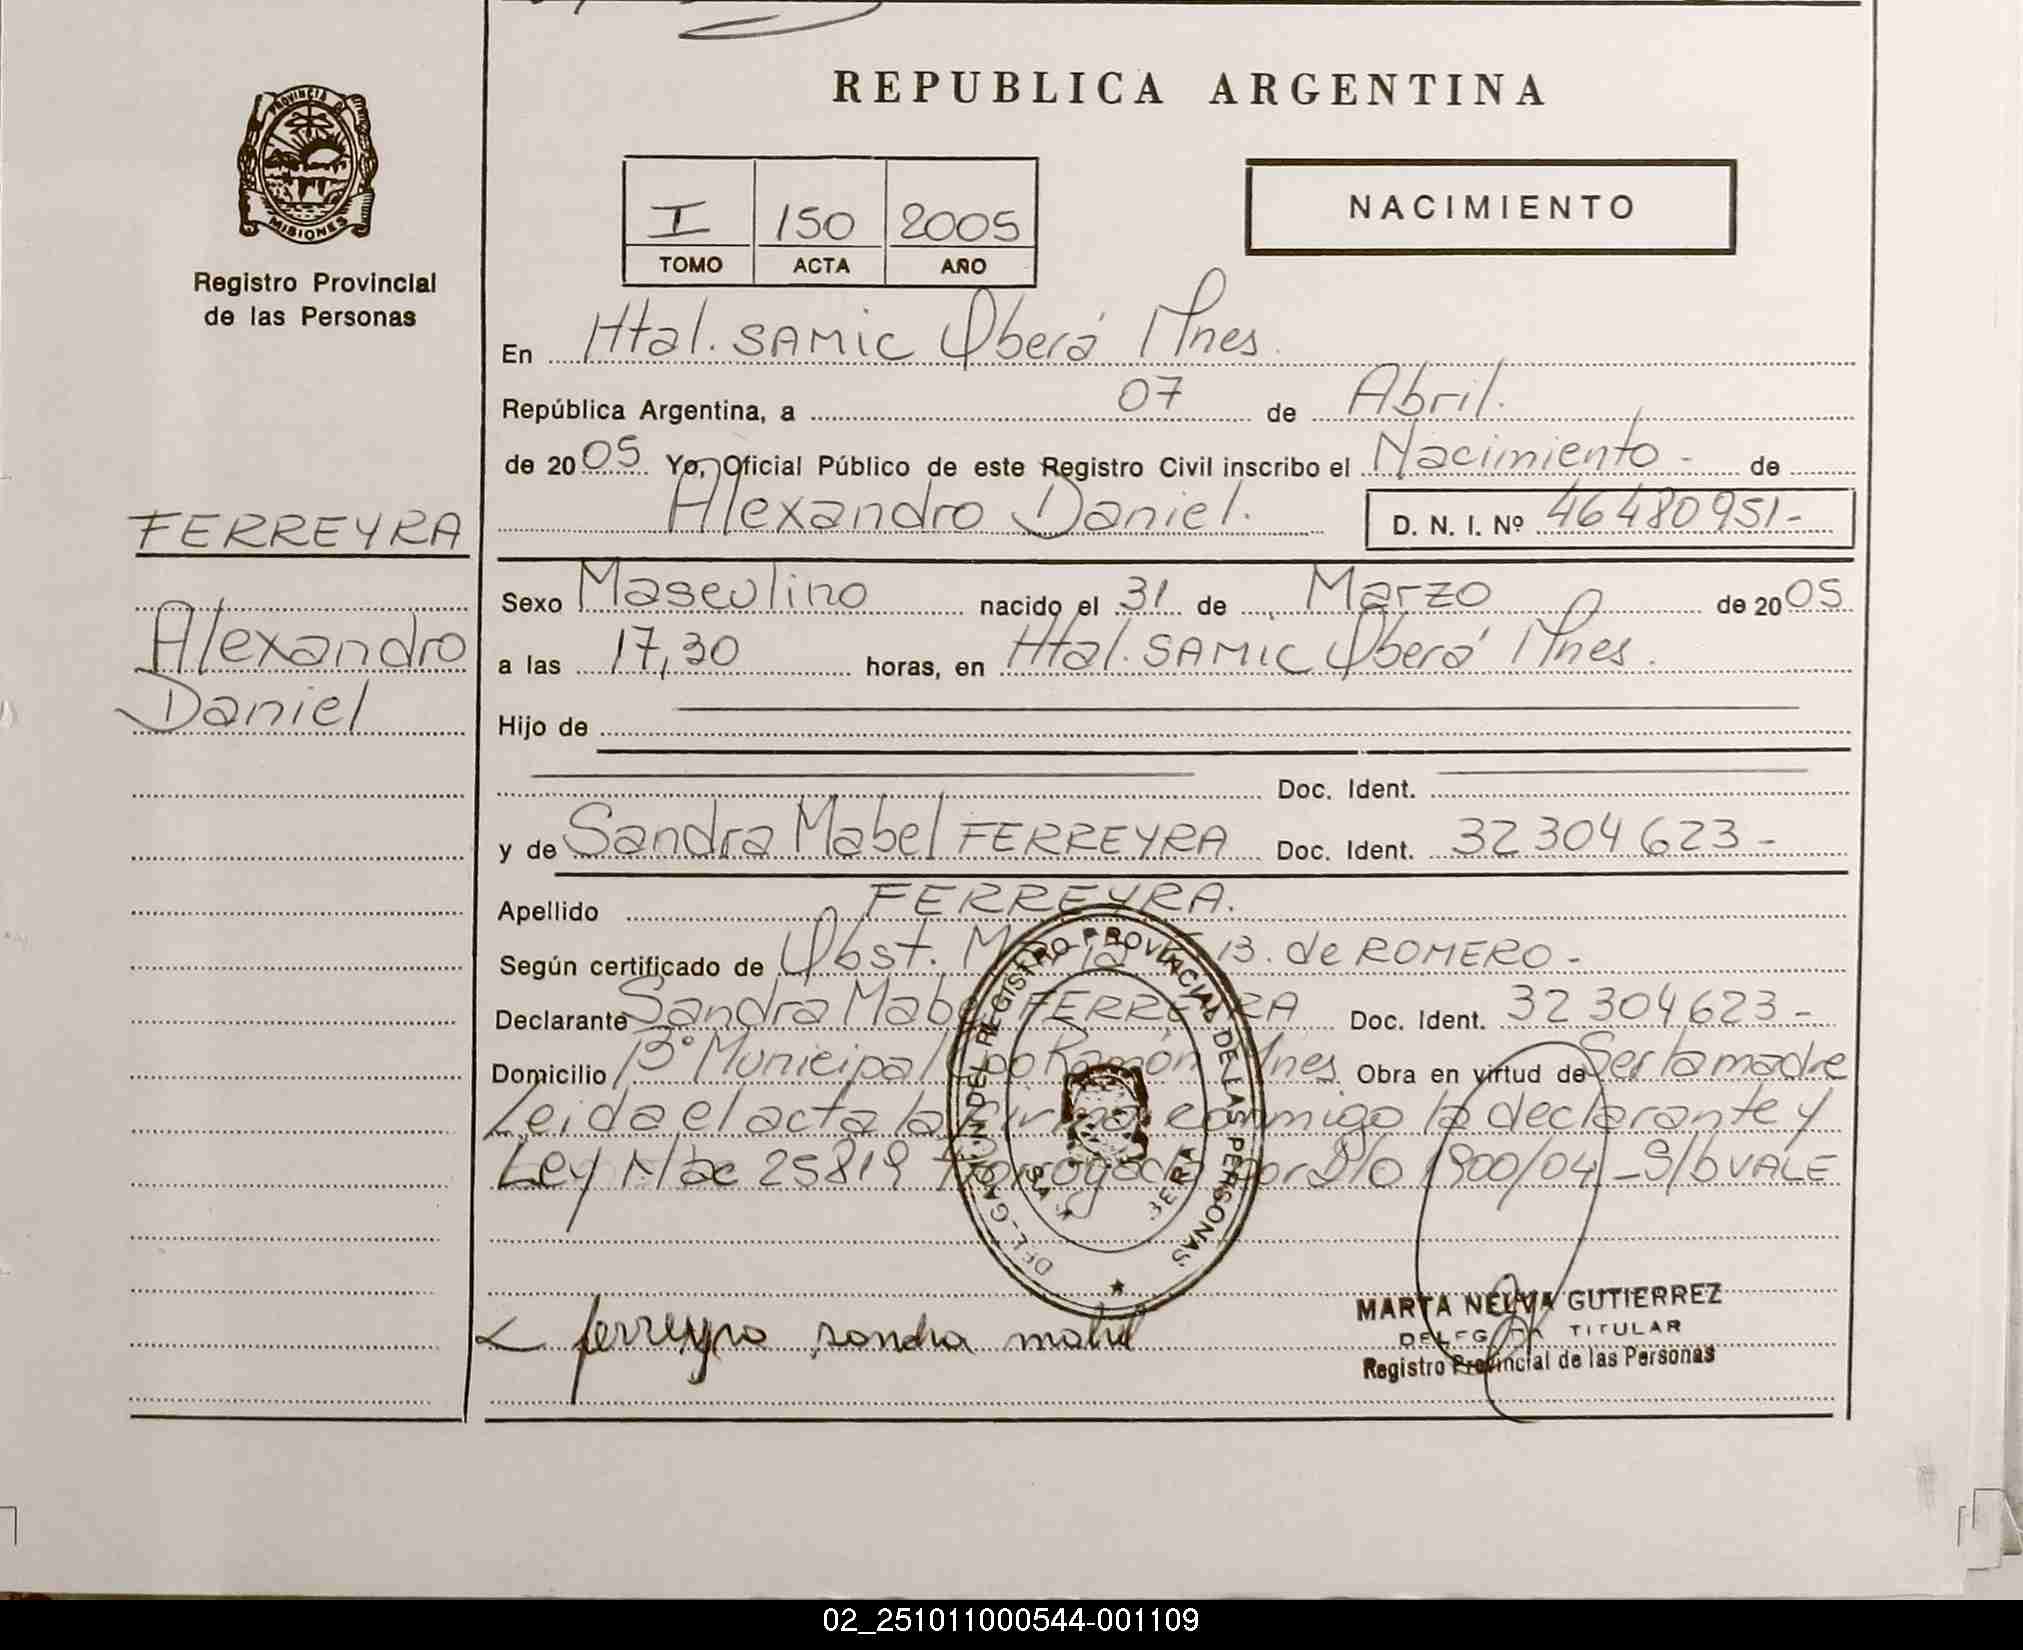 REPUBLICA ARGENTINA
PROVINCIA DE
MISIONES
Registro Provincial
de las Personas
I 150 2005
TOMO ACTA AÑO
NACIMIENTO
En Htal. SAMIC Oberá Mnes.
República Argentina, a 07 de Abril.
de 2005. Yo, Oficial Público de este Registro Civil inscribo el Nacimiento - de
Alexandro Daniel. D. N. I. Nº 46480951-
FERREYRA
Alexandro
Daniel
Sexo Masculino nacido el 31 de Marzo de 2005
a las 17,30 horas, en Htal. SAMIC Oberá Mnes.
Hijo de
Doc. Ident.
y de Sandra Mabel FERREYRA Doc. Ident. 32 304 623-
Apellido FERREYRA.
Según certificado de Obst. B. de ROMERO-
Declarante Sandra Mabel FERREYRA Doc. Ident. 32 304 623-
Domicilio Bº Municipal Cpo Ramón Mnes Obra en virtud de Ser la madre
Leida el acta la firma conmigo la declarante y
Ley Nac 25819 Prorrogada por D/o 1900/04 - S/b VALE
DEL REGISTRO PROVINCIAL DE LAS PERSONAS
ferreyra sandra mabel
MARTA NELVA GUTIERREZ
DELEGADA TITULAR
Registro Provincial de las Personas
02_251011000544-001109